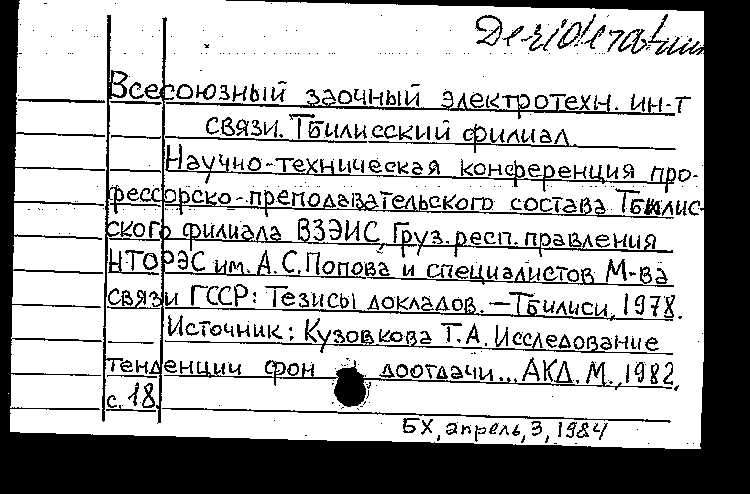 Desideratum
Всесоюзный заочный электротехн. ин-т
связи. Тбилисский филиал.
Научно-техническая конференция про-
фессорско-преподавательского состава Тбилис-
ского филиала ВЗЭИС, Груз. респ. правления
НТОРЭС им. А.С. Попова и специалистов М-ва
связи ГССР: Тезисы докладов. — Тбилиси, 1978.
Источник: Кузовкова Т.А. Исследование
тенденции фон доотдачи... АКД. М., 1982,
с. 18.
БХ, апрель, 3, 1984